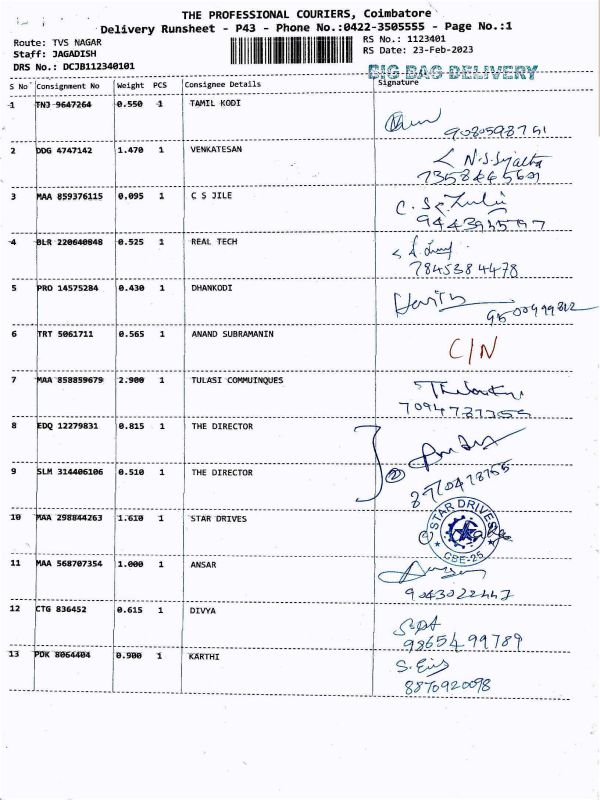 THE PROFESSIONAL COURIERS, Coimbatore
Delivery Runsheet - P43 - Phone No.:0422-3505555 - Page No.:1
Route: TVS NAGAR
Staff: JAGADISH
DRS No.: DCJB112340101
RS No.: 1123401
RS Date: 23-Feb-2023
BIG BAG DELIVERY
S No Consignment No Weight PCS Consignee Details Signature
1 TNJ 9647264 0.550 1 TAMIL KODI
9080598751
2 DDG 4747142 1.470 1 VENKATESAN
3 MAA 859376115 0.095 1 C S JILE
4 BLR 220640848 0.525 1 REAL TECH
7845384478
5 PRO 14575284 0.430 1 DHANKODI
6 TRT 5061711 0.565 1 ANAND SUBRAMANIN
C/N
7 MAA 858859679 2.900 1 TULASI COMMUINQUES
8 EDQ 12279831 0.815 1 THE DIRECTOR
9 SLM 314406106 0.510 1 THE DIRECTOR
(2)
10 MAA 298844263 1.610 1 STAR DRIVES
STAR DRIVES
CBE-25
11 MAA 568707354 1.000 1 ANSAR
9043022447
12 CTG 836452 0.615 1 DIVYA
9865499789
13 PDK 8064404 0.900 1 KARTHI
8870920098